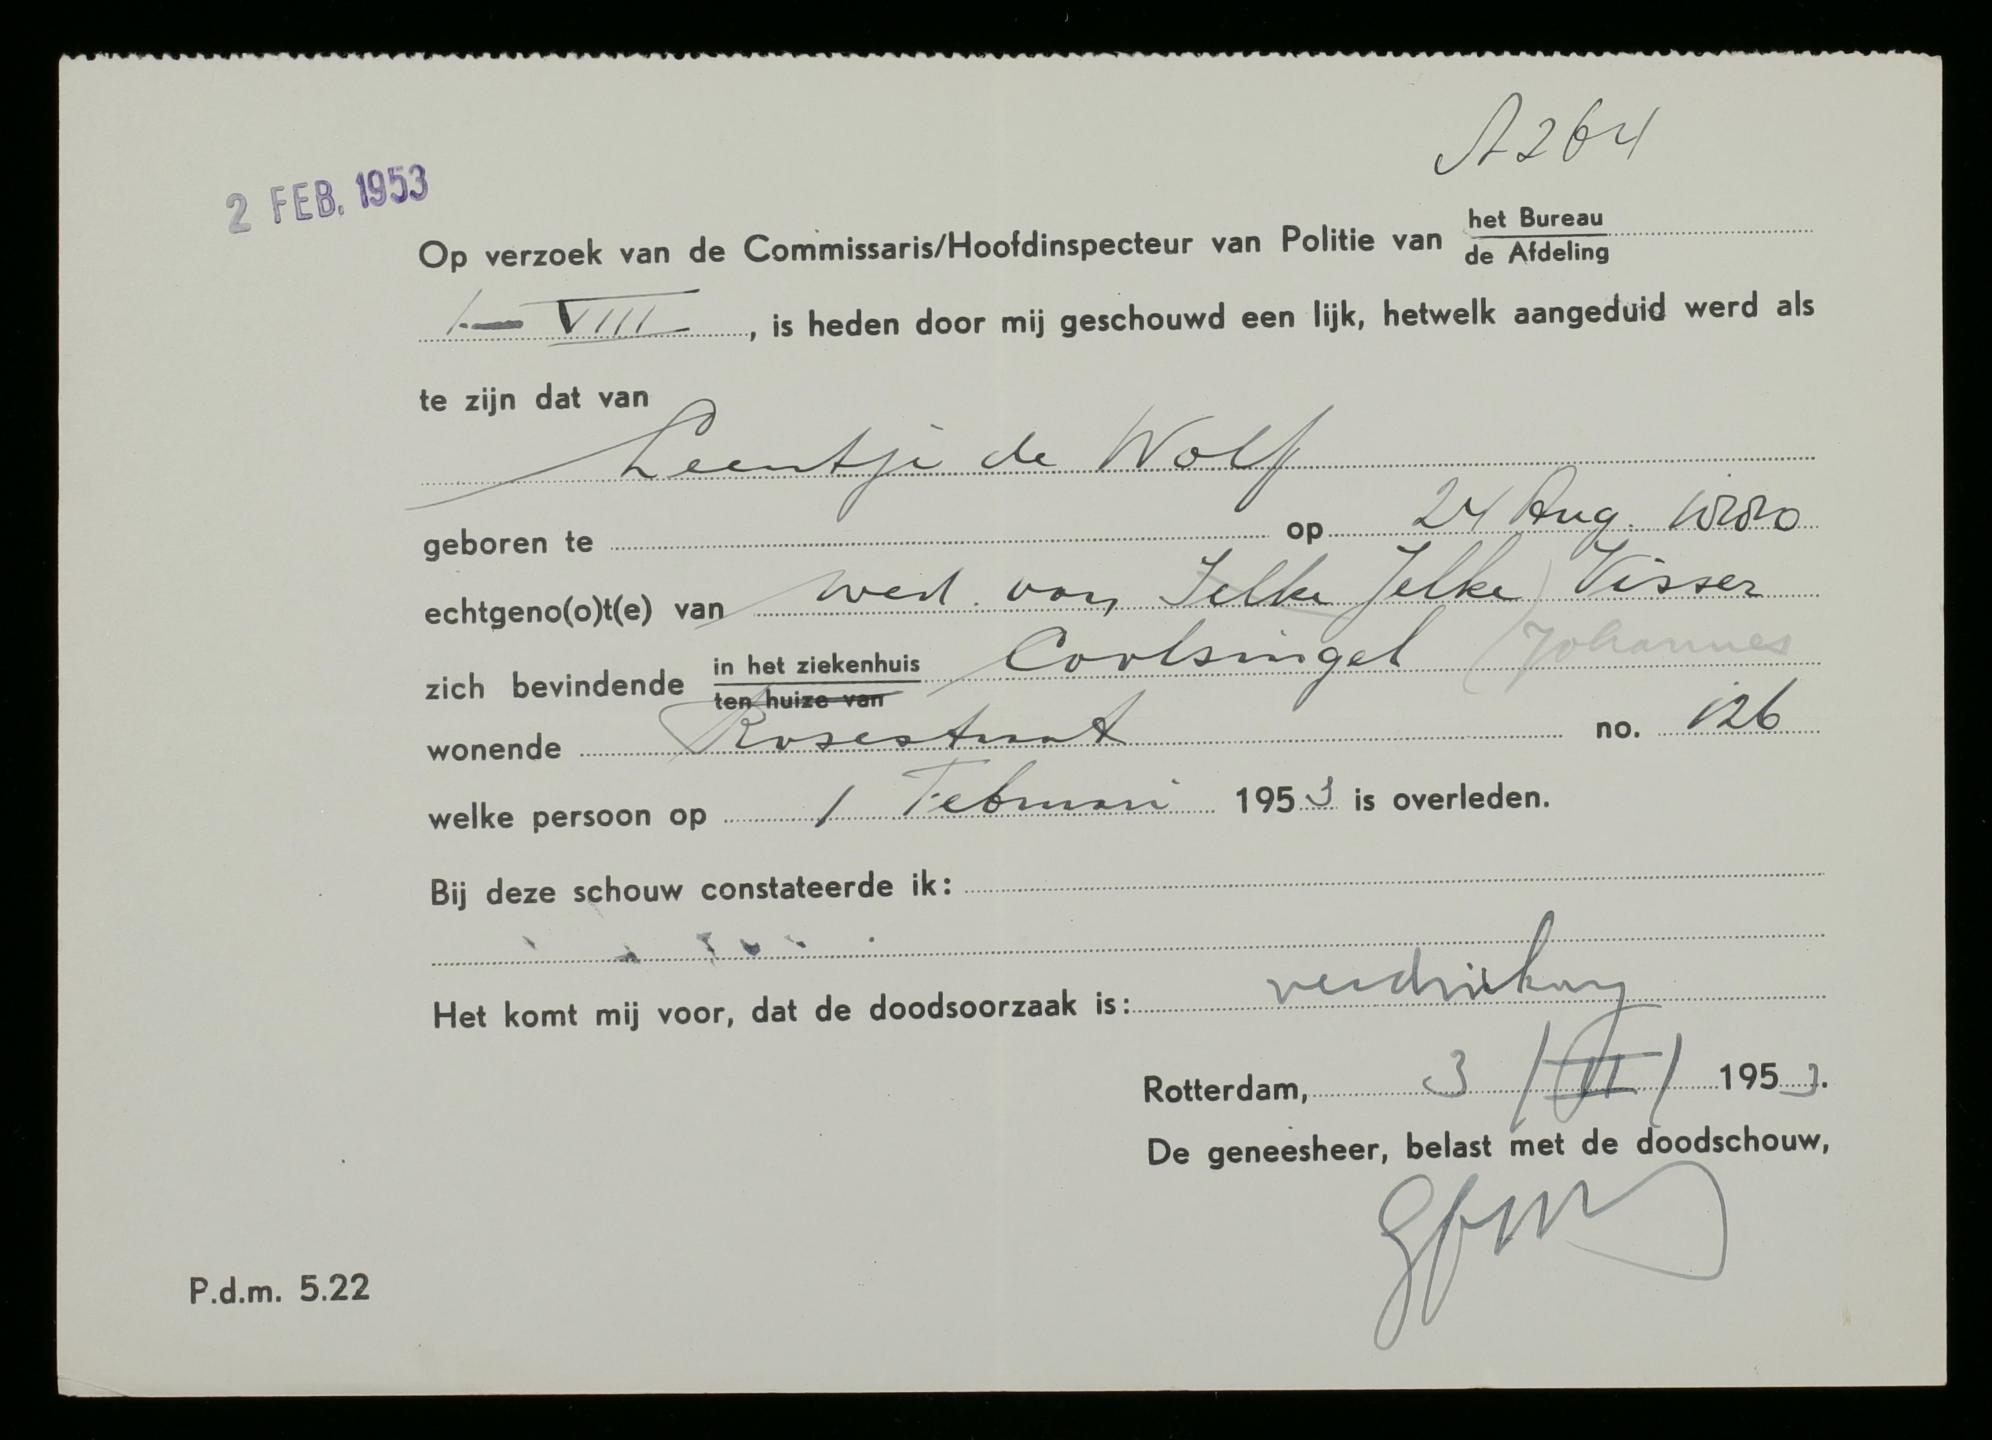 A264
2 FEB. 1953
Op verzoek van de Commissaris/Hoofdinspecteur van Politie van het Bureau
de Afdeling
1 - VIII, is heden door mij geschouwd een lijk, hetwelk aangeduid werd als
te zijn dat van
Leentje de Wolf
geboren te op 24 Aug. 1880
echtgeno(o)t(e) van wed. van Jelke Jelke Visser
(Johannes
zich bevindende in het ziekenhuis Coolsingel
ten huize van
wonende Rosestraat no. 126
welke persoon op 1 Februari 1953 is overleden.
Bij deze schouw constateerde ik:
Het komt mij voor, dat de doodsoorzaak is: verdrinking
Rotterdam, 3 / II / 1953.
De geneesheer, belast met de doodschouw,
P.d.m. 5.22